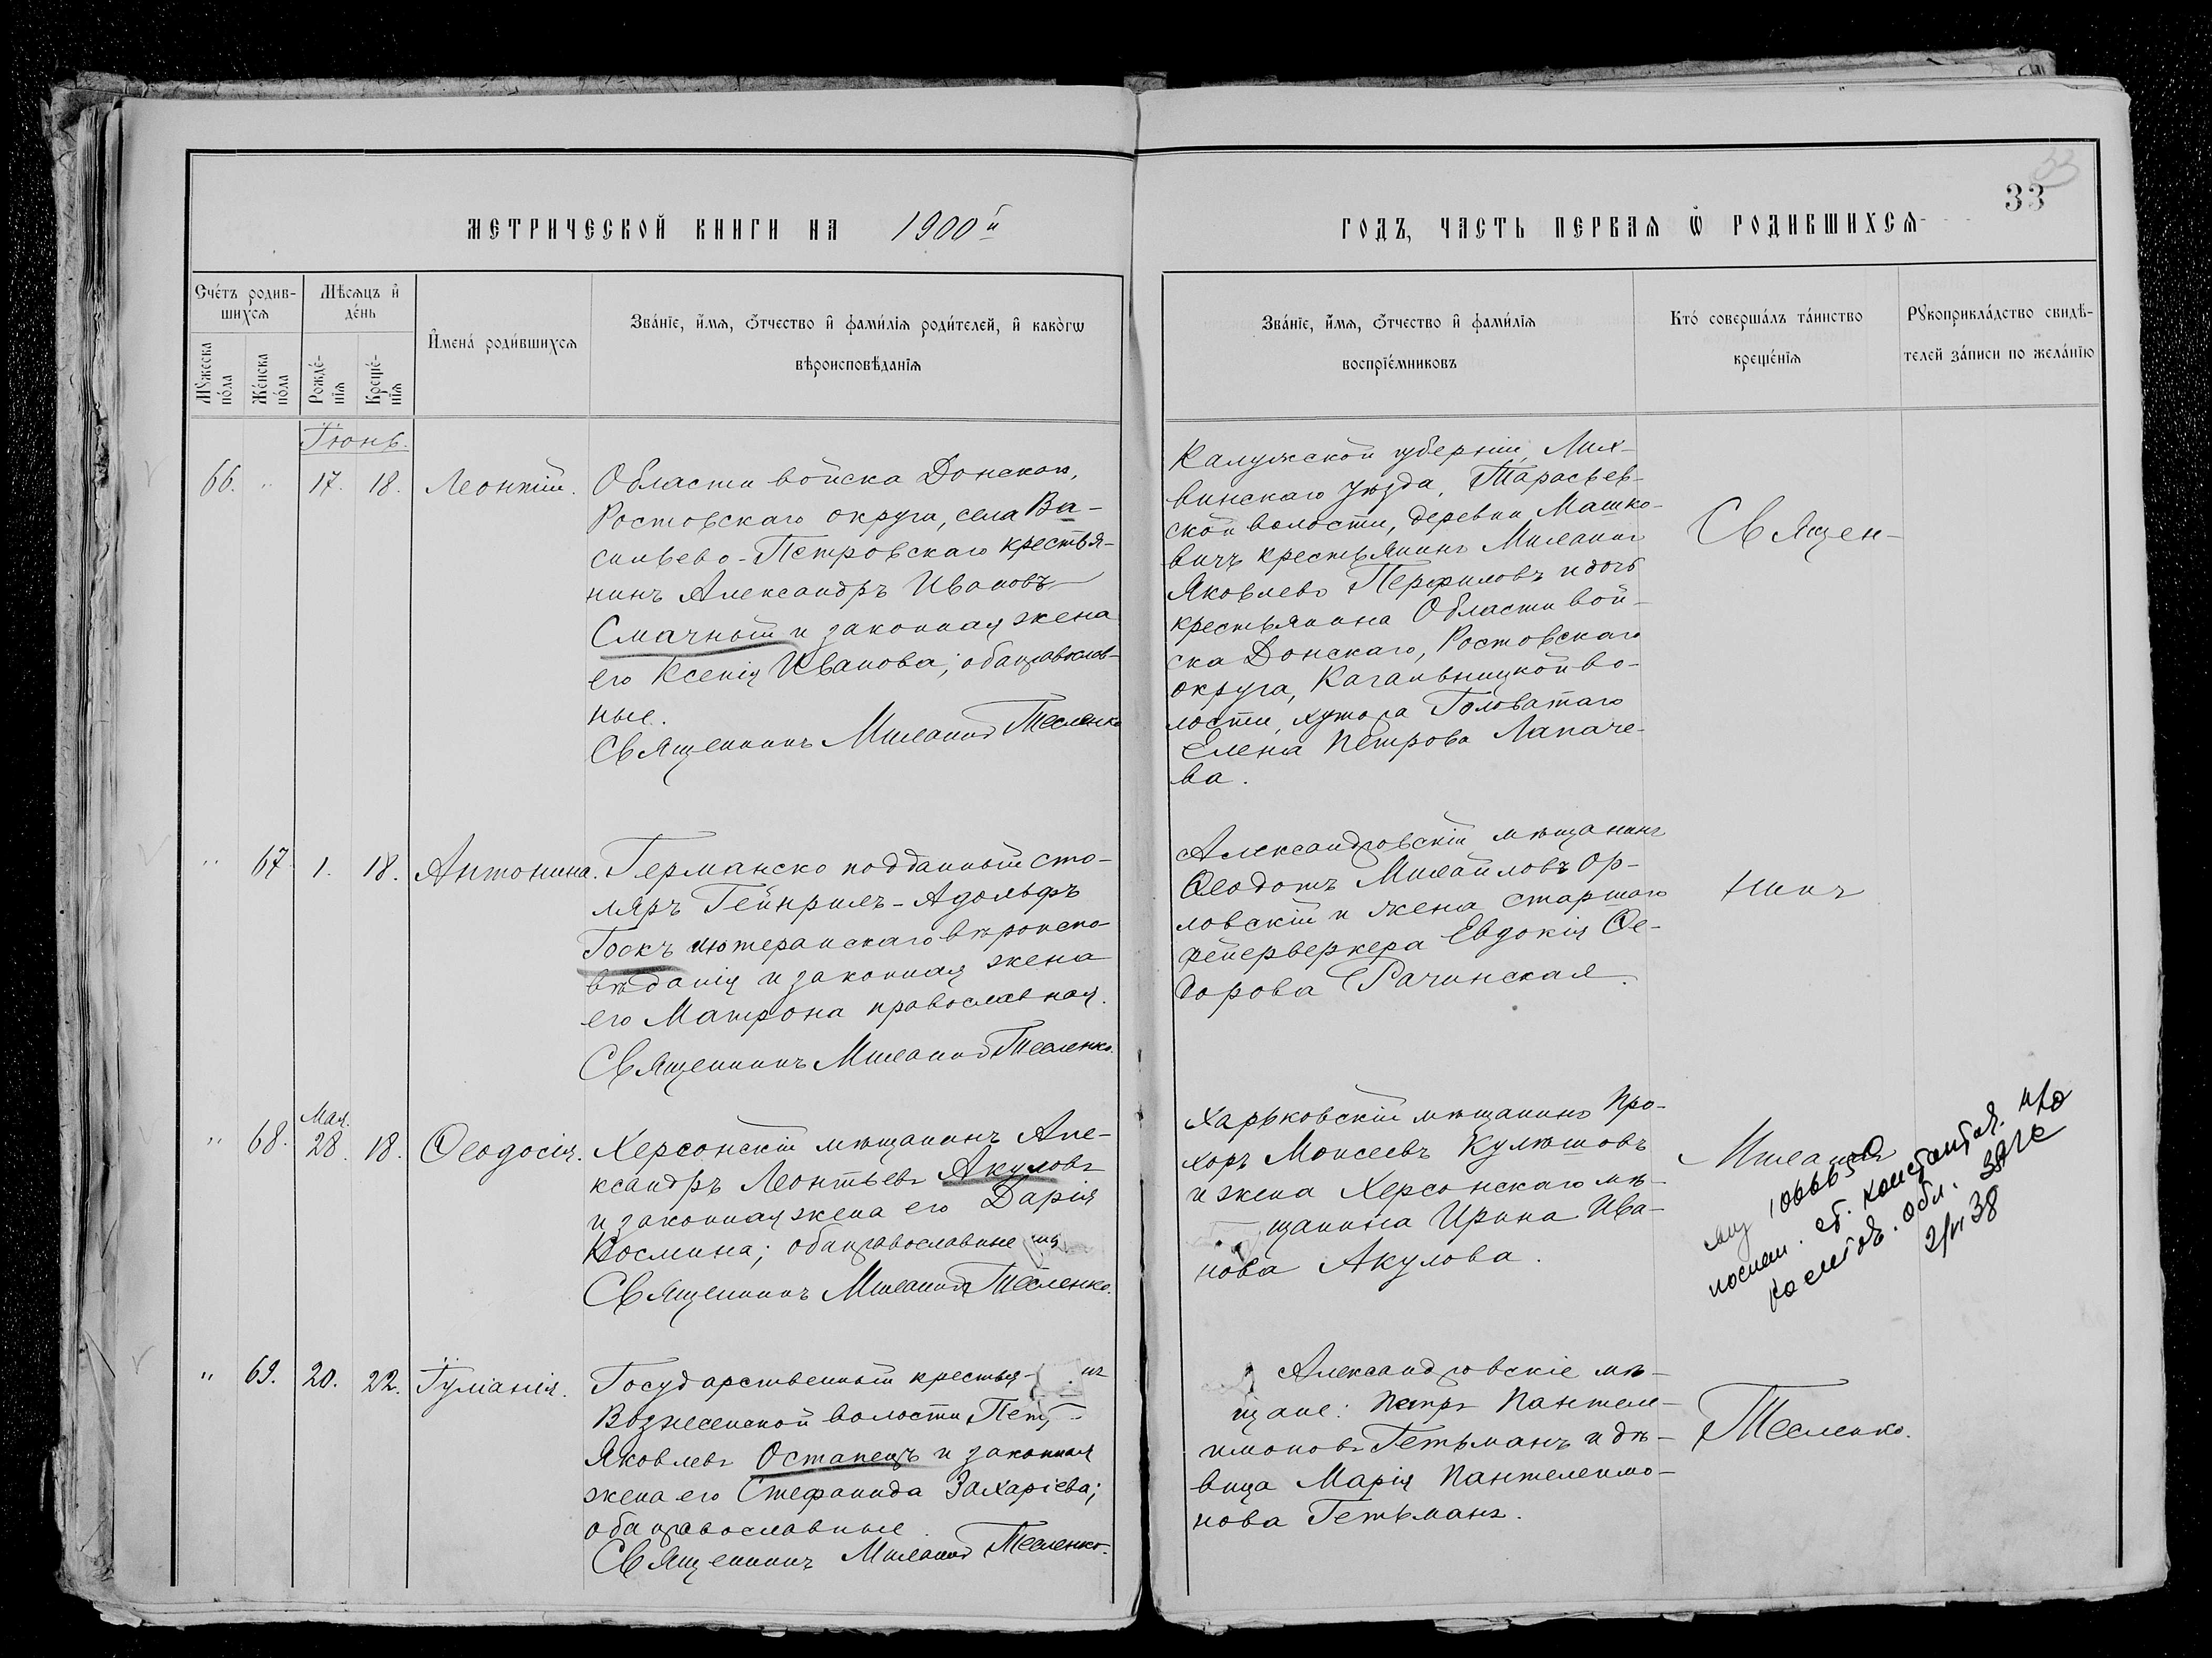 33
33
МЕТРИЧЕСКОЙ КНИГИ НА 1900й
ГОДЪ, ЧАСТЬ ПЕРВАЯ Ѽ РОДИВШИХСЯ
Счетъ родив-
шихся
Мужеска
пола
Женска
пола
Мѣсяцъ и
день
Рожде-
нія
Креще-
нія
Имена родившихся
Званіе, имя, отчество и фамилія родителей, и какогѡ
вѣроисповѣданія
Званіе, имя, отчество и фамилія
воспріемниковъ
Кто совершалъ таинство
крещенія
Рукоприкладство свидѣ-
телей записи по желанію
Іюнь.
66. " 17. 18. Леонтій.
Области войска Донского,
Ростовскаго округа, села Ва-
сильево-Петровскаго крестья-
нинъ Александръ Ивановъ
Смачный и законная жена
его Ксенія Иванова; оба православ-
ные.
Священникъ Михаилъ Тесленко
Калужской губерніи, Лих-
винскаго уѣзда, Тарасьев-
ской волости, деревни Машко-
вичъ крестьянинъ Михаилъ
Яковлевъ Перфиловъ и дочь
крестьянина Области Вой-
ска Донскаго, Ростовскаго
округа, Кагальницкой во-
лости, хутора Головатаго
Елена Петрова Лапаче-
ва.
Священ-
" 67. 1. 18. Антонина.
Германско подданный сто-
ляръ Гейнрихъ-Адольфъ
Госкъ лютеранскаго вѣроиспо-
вѣданія и законная жена
его Матрона православная.
Священникъ Михаилъ Тесленко.
Александровскій мѣщанинъ
Ѳеодотъ Михайловъ Ор-
ловскій и жена старшаго
фейерверкера Евдокія Ѳе-
дорова Рачинская.
никъ
Мая.
" 68. 28. 18. Ѳеодосія.
Херсонскій мѣщанинъ Але-
ксандръ Леонтьевъ Акуловъ
и законная жена его Дарія
Космина; оба православные
Священникъ Михаилъ Тесленко.
Харьковскій мѣщанинъ Про-
хоръ Моисеевъ Кулѣшовъ
и жена Херсонскаго мѣ-
щанина Ирина Ива-
нова Акулова.
Михаилъ
106665
обл. ЗАГС
2/VI 38
" 69. 20. 22. Іуліанія.
Государственный крестья-
Вознесенской волости Петръ
Яковлевъ Остапецъ и законная
жена его Стефанида Захаріева;
оба православные.
Священникъ Михаилъ Тесленко.
Александровскіе мѣ-
щане: Петръ Пантеле-
имоновъ Гетьманъ и дѣ-
вица Марія Пантелеимо-
нова Гетьманъ.
Тесленко.